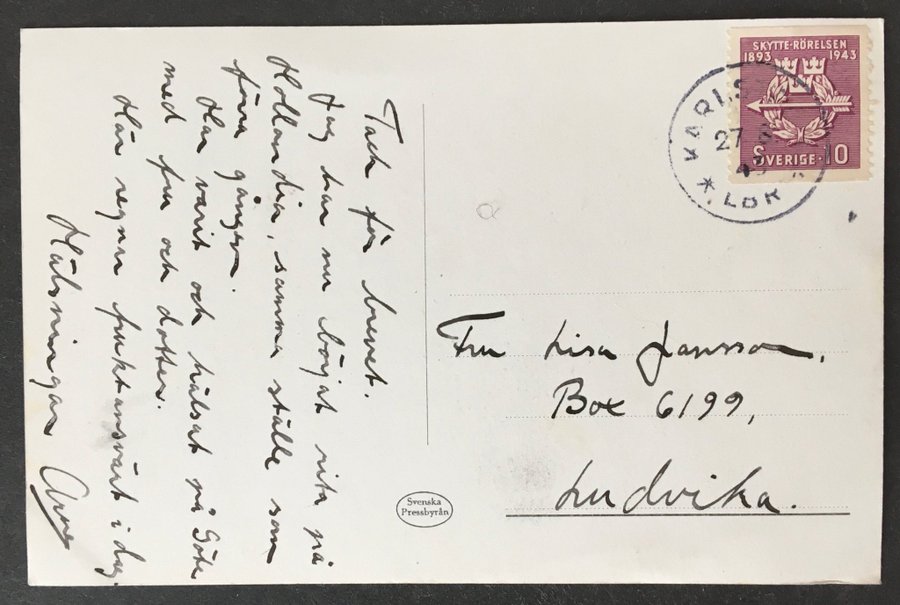 Tack för brevet.
Jag har nu börjat rita på
Hollandia, samma ställe som
förra gången.
Har varit och hälsat på Göte
med fru och dotter.
Här regnar fruktansvärt i dag.
Hälsningar Arne
SKYTTE-RÖRELSEN
1893 1943
SVERIGE·10
KARLS
27
43
LBR
Fru Lisa Jansson,
Box 6199,
Ludvika.
Svenska
Pressbyrån